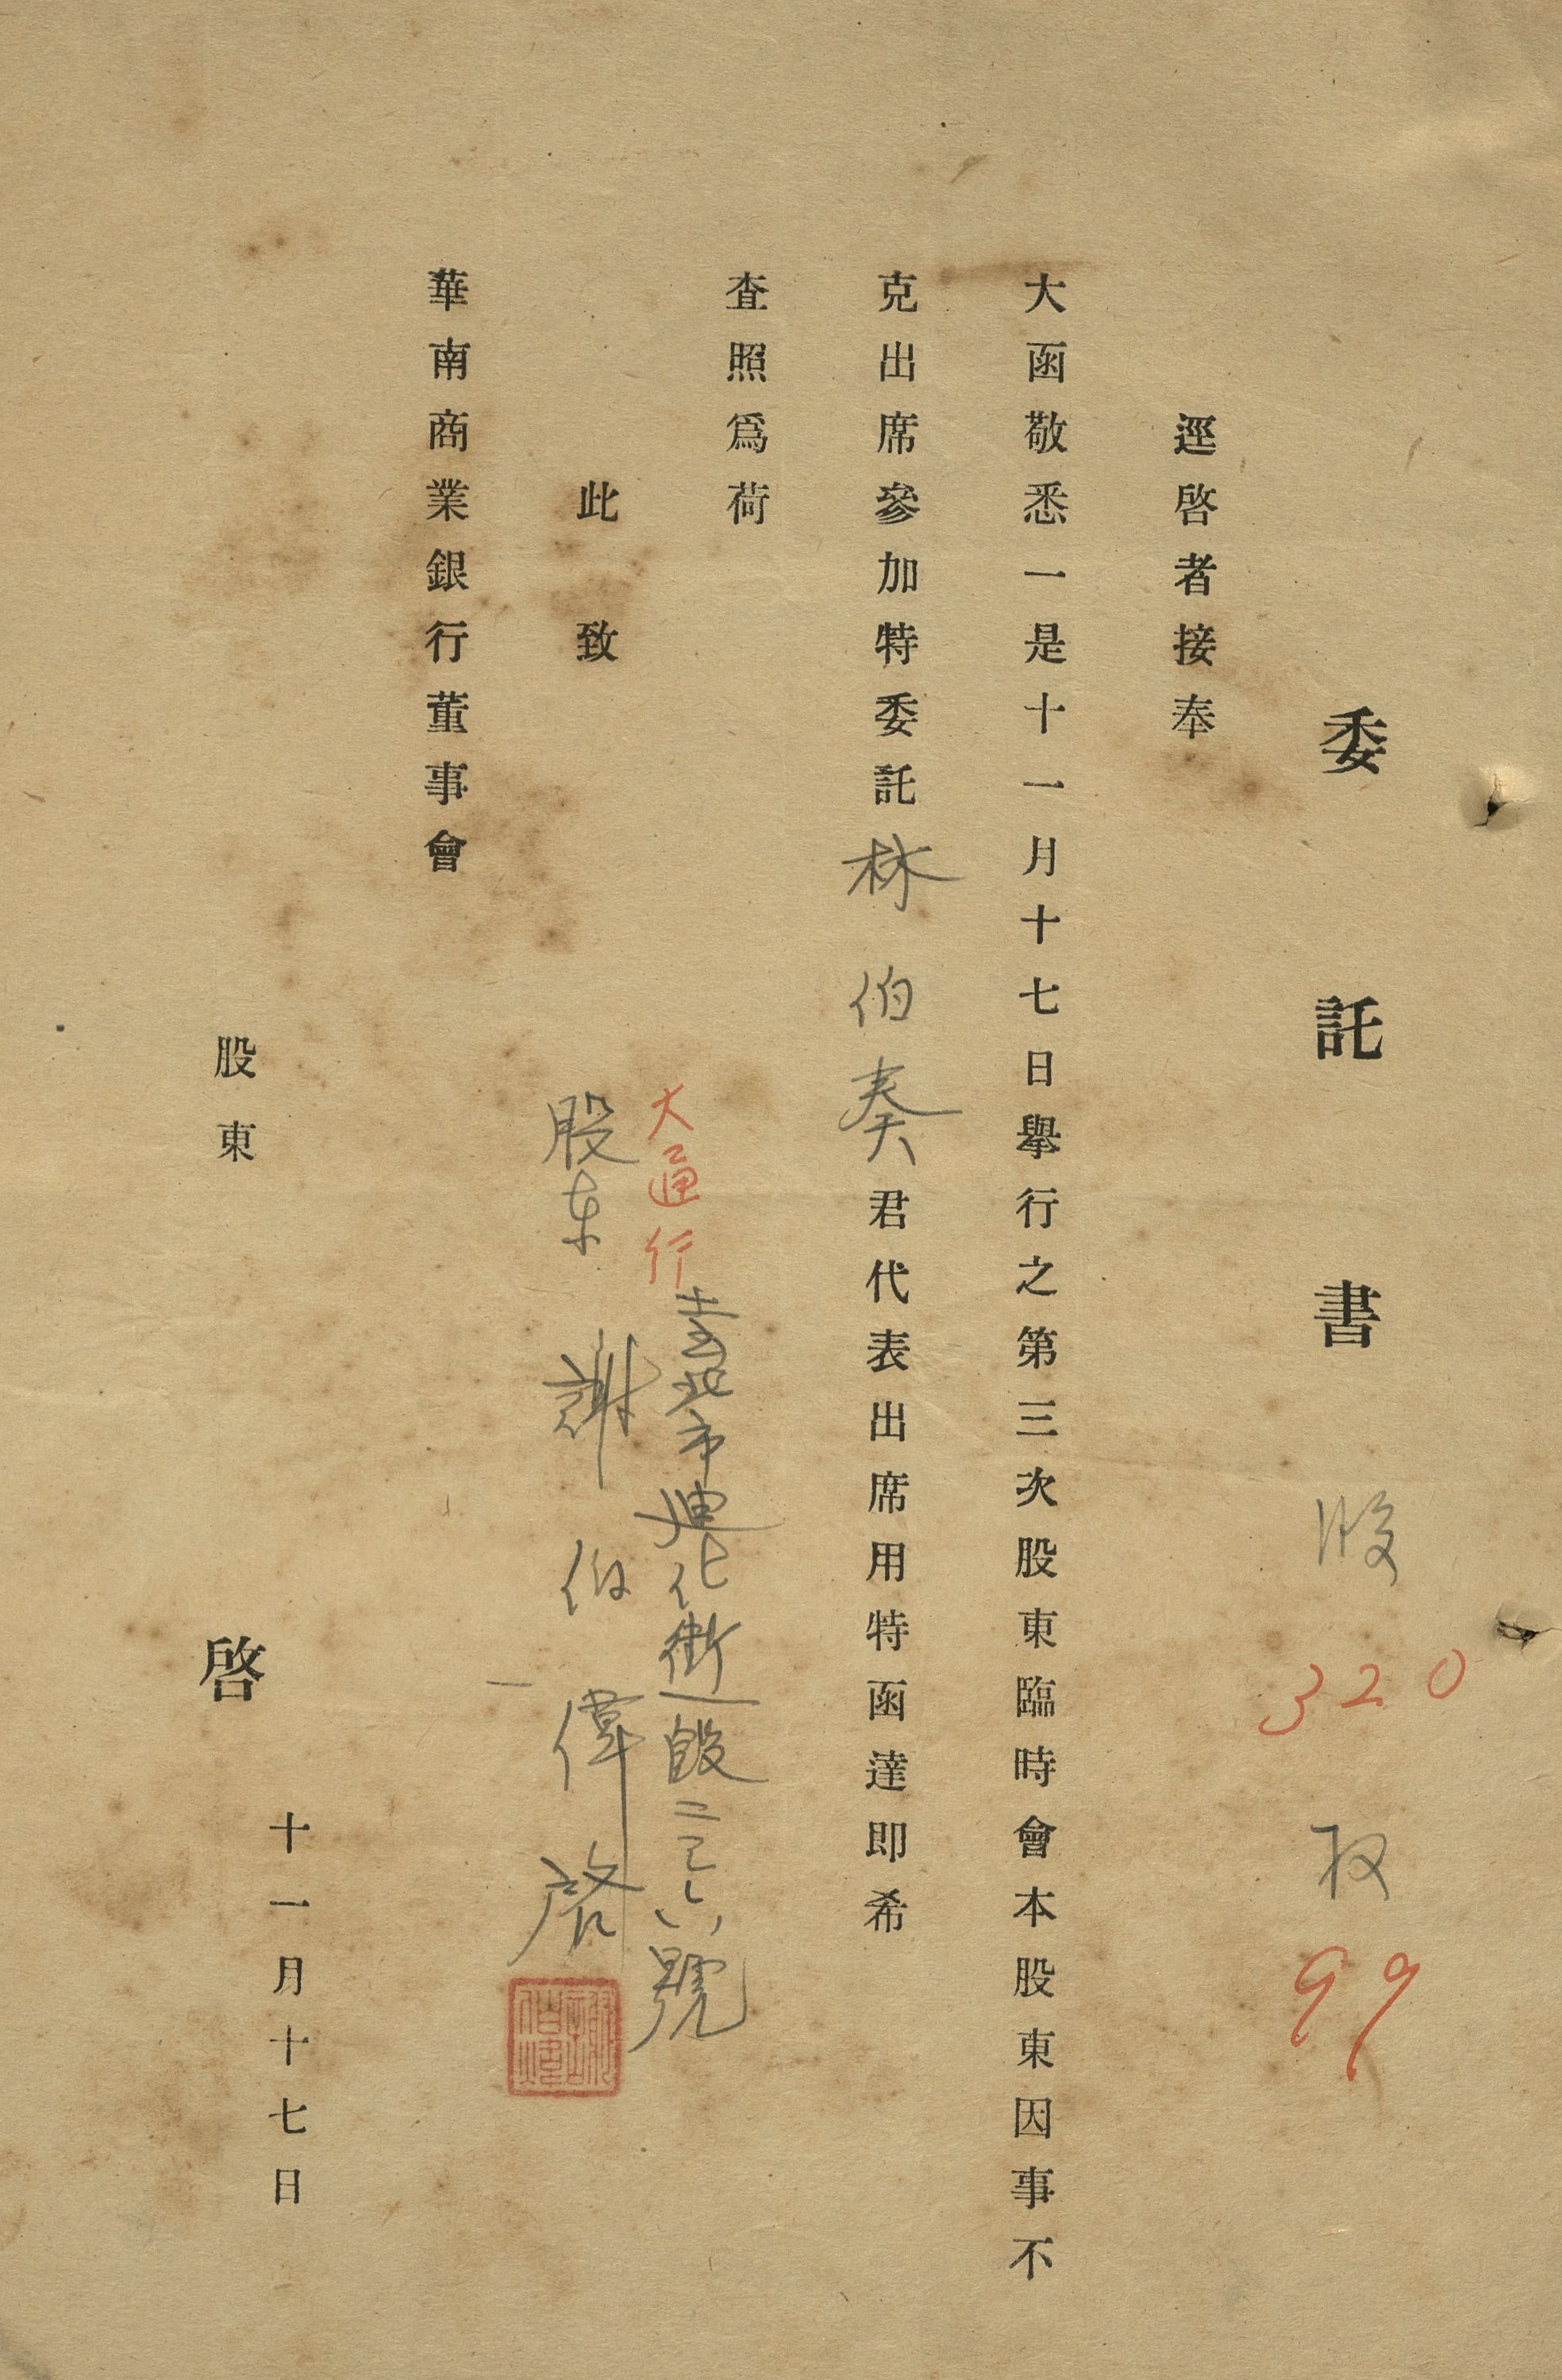 委託書 股 320 权 99
逕啓者接奉
大函敬悉一是十一月十七日舉行之第三次股東臨時會本股東因事不
克出席參加特委託林伯奏君代表出席用特函達即希
查照爲荷
大通行
臺北市迪化街一段二三六號
此致
股東 謝伯偉啓
華南商業銀行董事會
十一月十七日
股東 啓